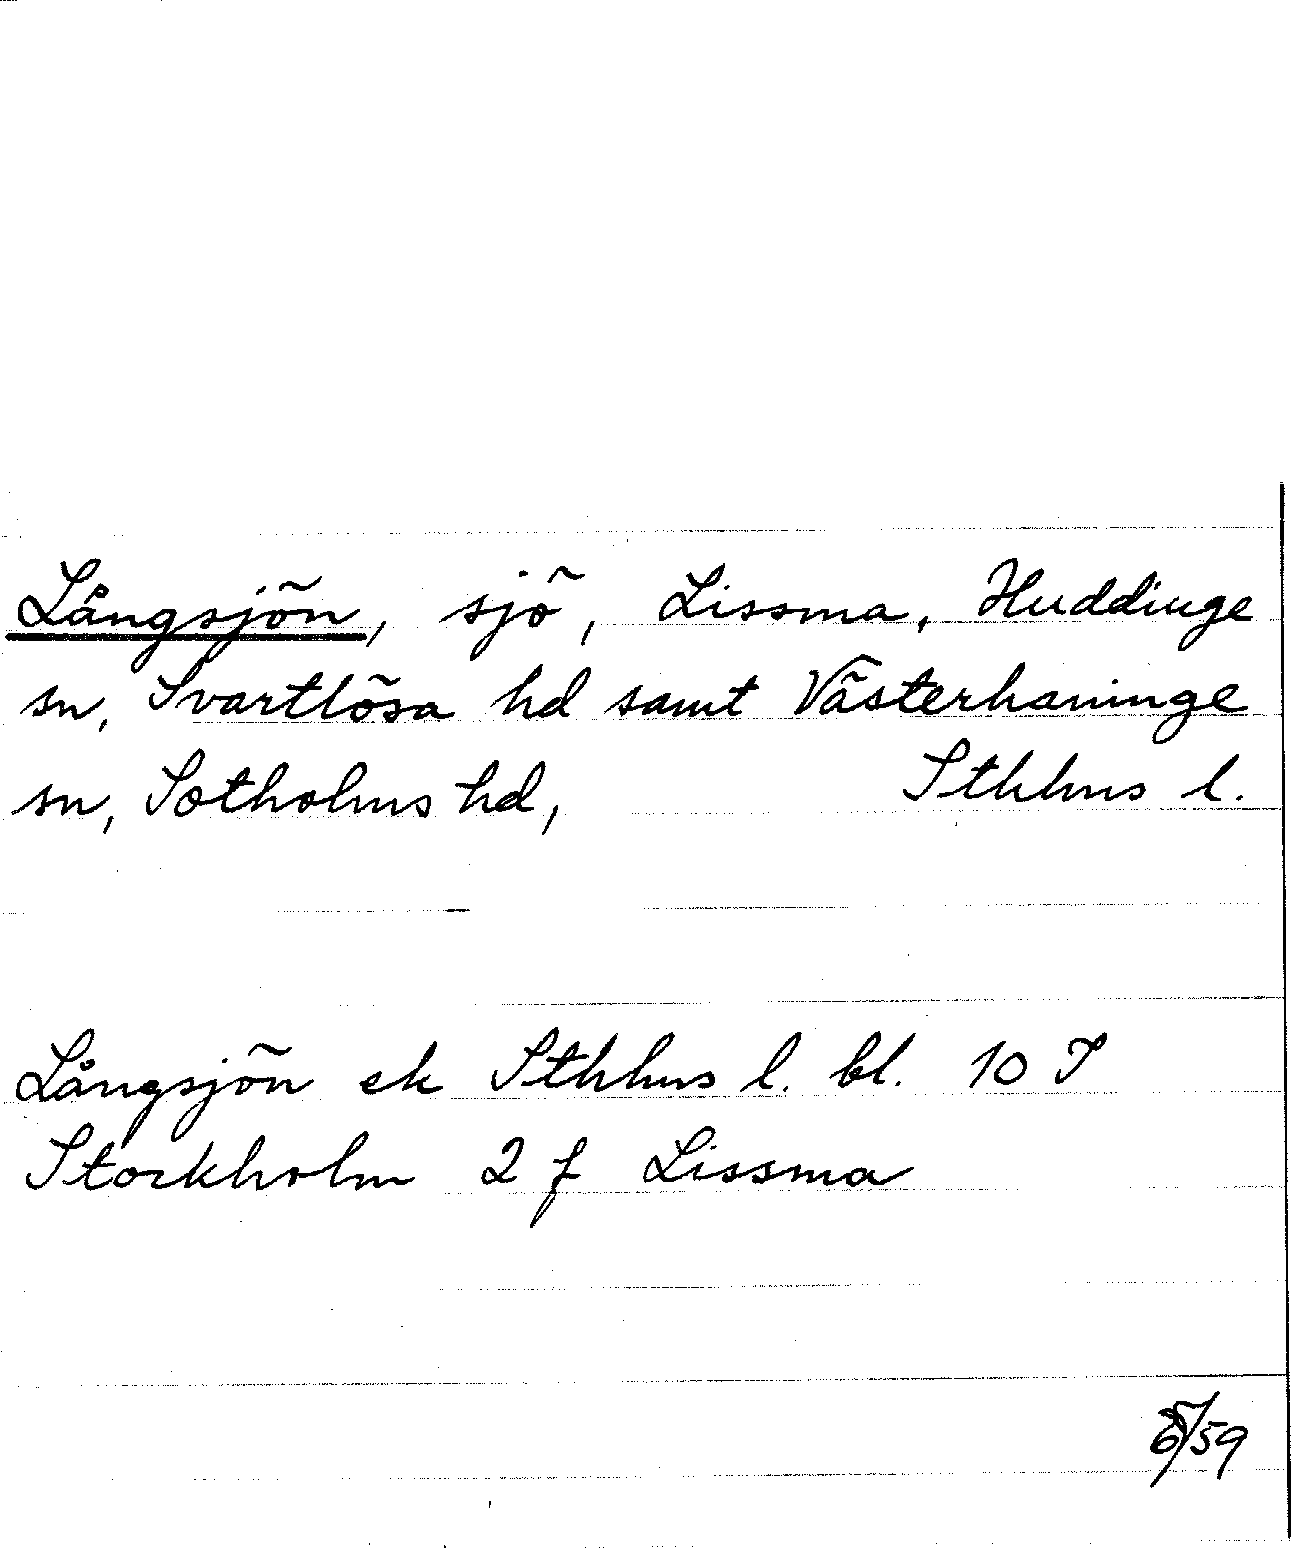 Långsjön, sjö, Lissma, Huddinge
sn, Svartlösa hd samt Västerhaninge
sn, Sotholms hd, Sthlms l.
Långsjön ek Sthlms l. bl. 10 I
Stockholm 2 f Lissma
/59